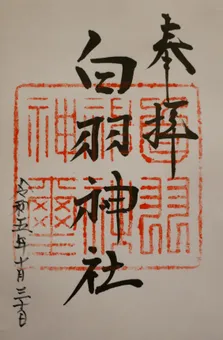 奉拝
白羽神社
令和五年十月三十日